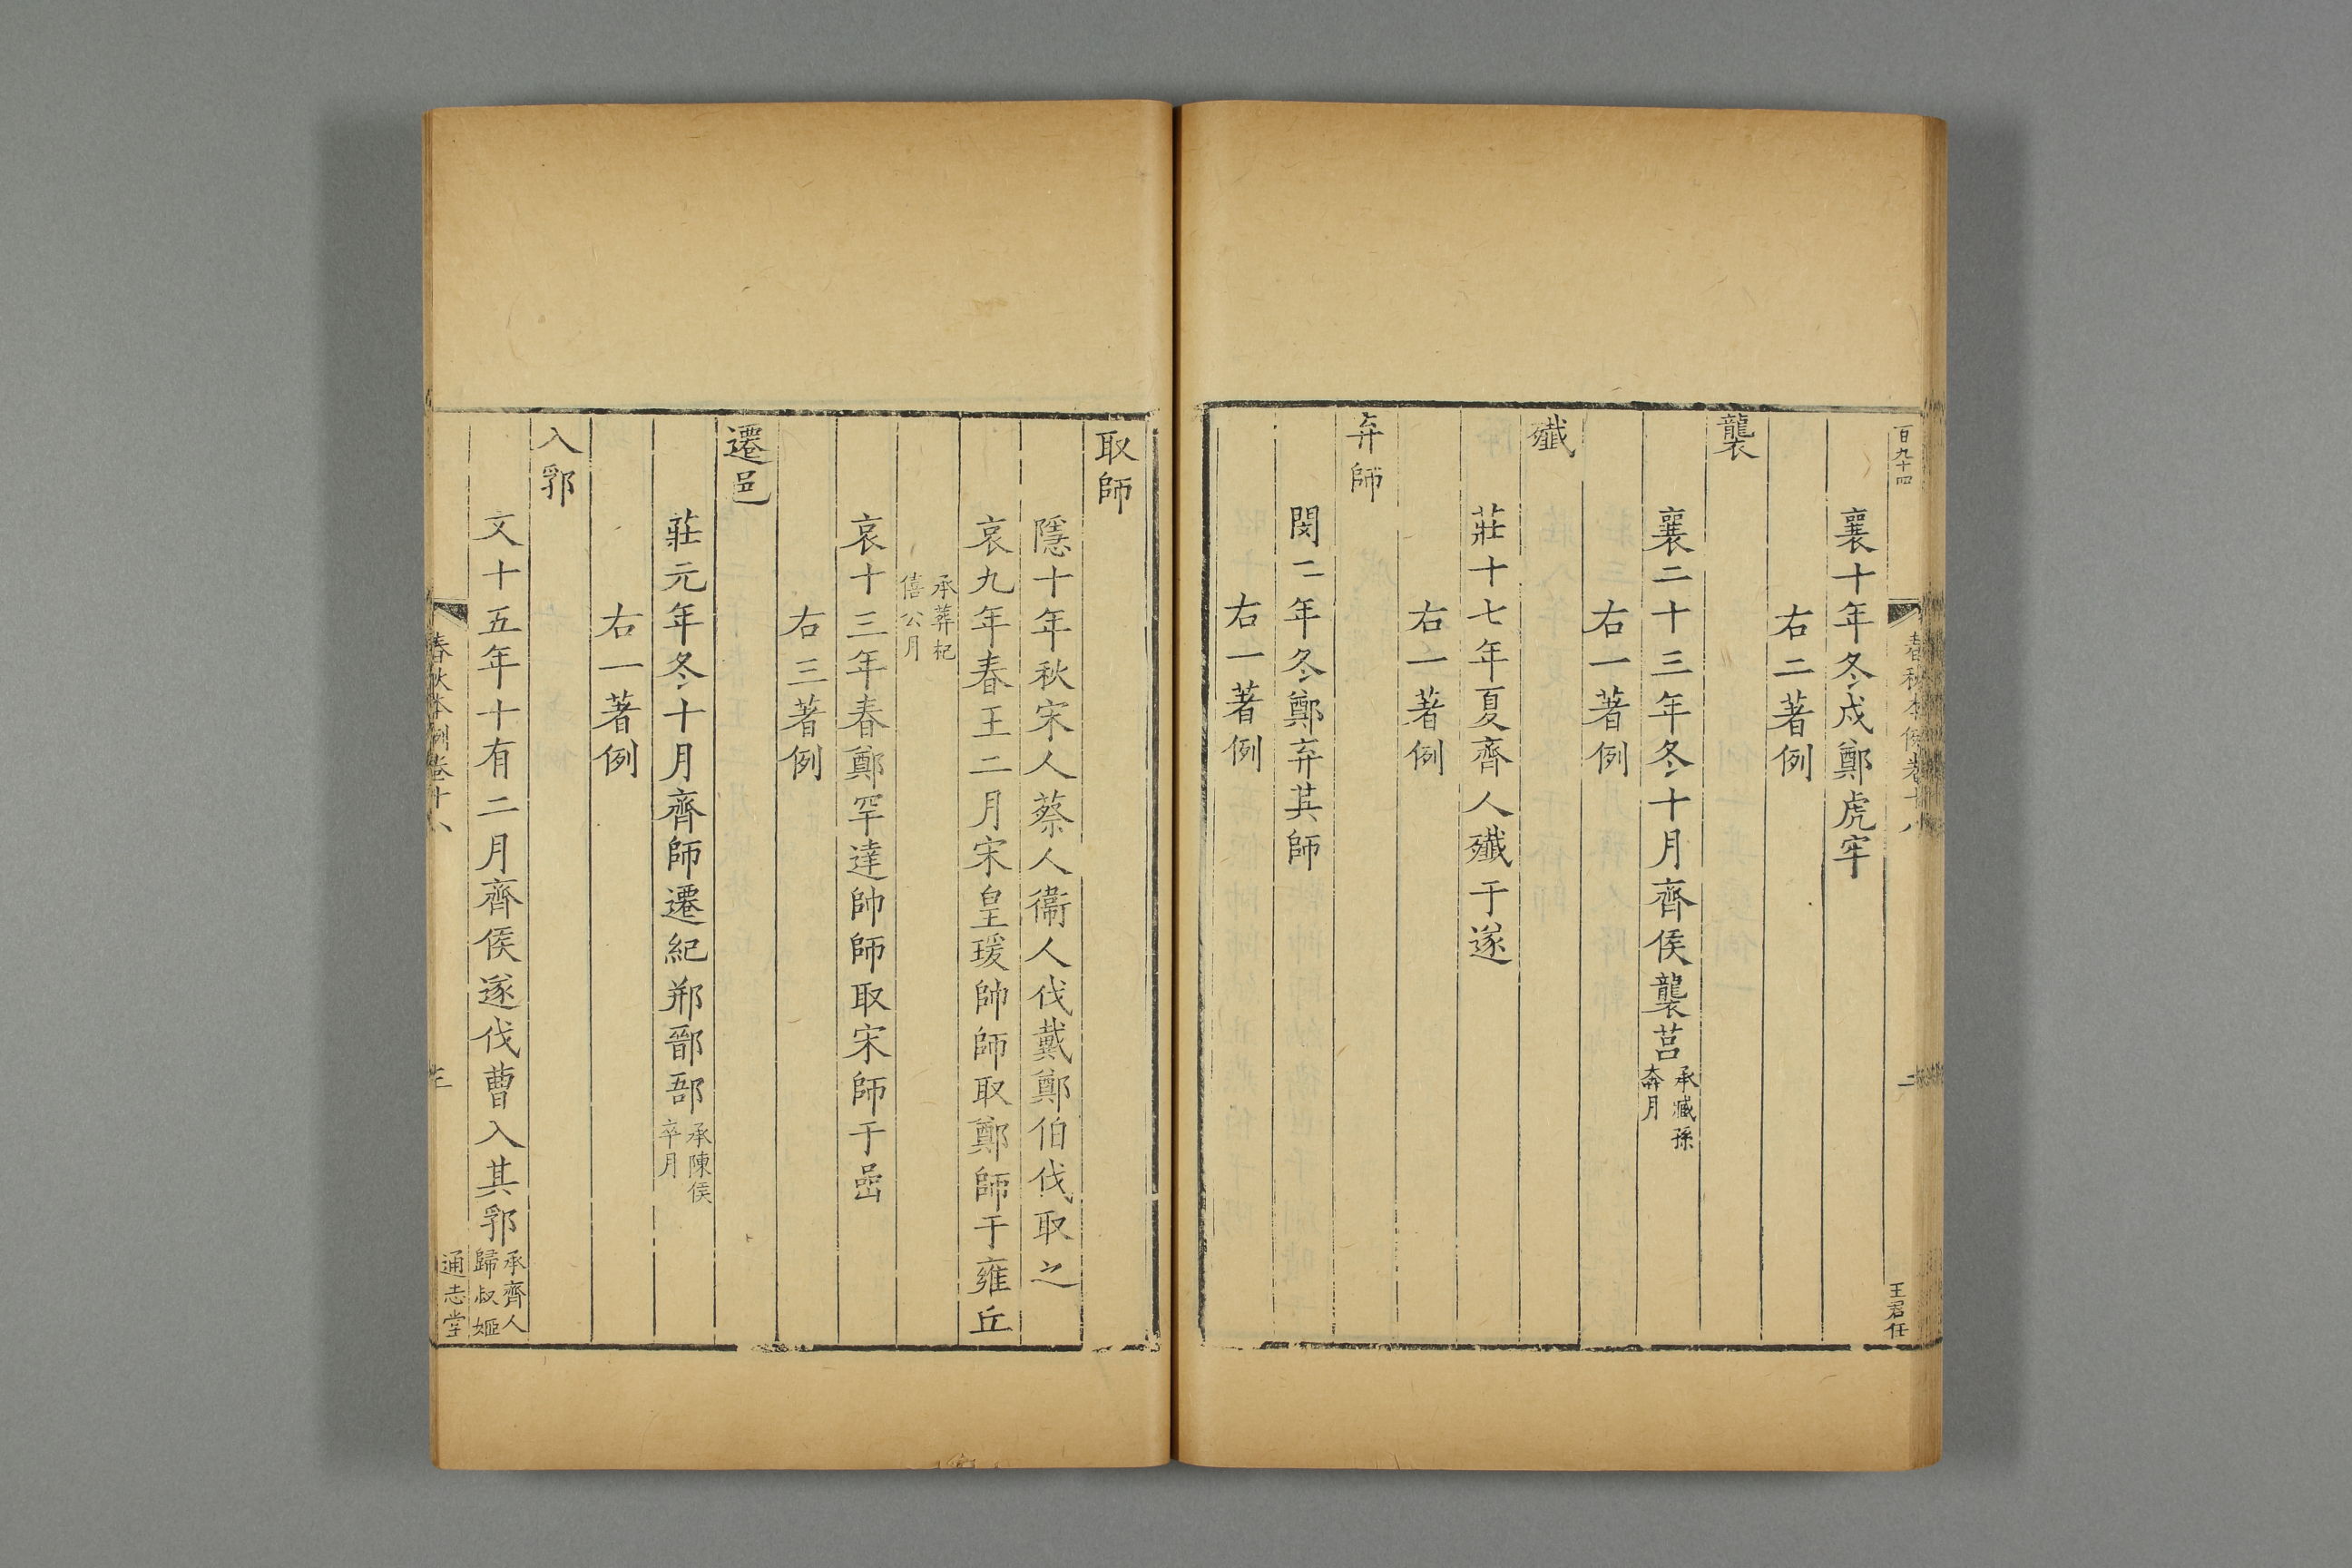 百九十四
春秋本例卷十八
二
王君任
襄十年冬戍鄭虎牢
右二著例
襲
襄二十三年冬十月齊侯襲莒承臧孫奔月
右一著例
殲
莊十七年夏齊人殲于遂
右一著例
弃師
閔二年冬鄭弃其師
右一著例
取師
隱十年秋宋人蔡人衞人伐戴鄭伯伐取之
哀九年春王二月宋皇瑗帥師取鄭師于雍丘
承葬杞僖公月
哀十三年春鄭罕達帥師取宋師于嵒
右三著例
遷邑
莊元年冬十月齊師遷紀郱鄑郚承陳侯卒月
右一著例
入郛
文十五年十有二月齊侯遂伐曹入其郛承齊人歸叔姬
春秋本例卷十八
通志堂